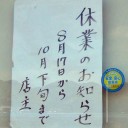 休業のお知らせ
8月17日から
10月下旬まで
店主